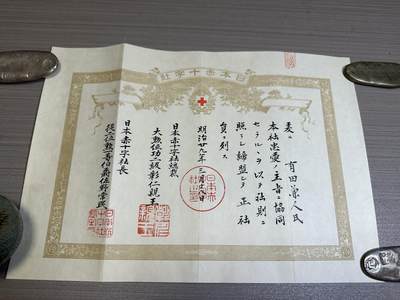 日本赤十字社
有田
爰ニ
本社忠愛ノ主旨ニ協同
セラルヽヲ以テ法則ニ
照ラシ締盟シテ正社
員ニ列ス
明治廿九年三月 日
日本赤十字社総裁
大勲位功二級彰仁親王
日本赤十字社長
従二位勲一等伯爵佐野常民